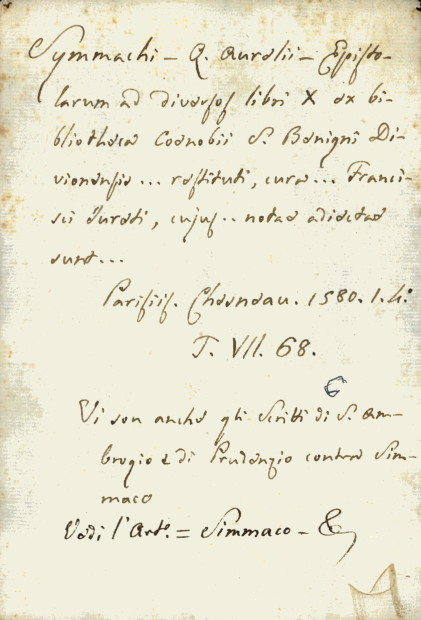 Symmachi - Q. Aurelii - Episto-
larum ad diversos libri X ex bi-
bliotheca Coenobii S. Benigni Di-
vionensis... restituti, cura... Franci-
sci Iureti, cujus.. notae adjectae
sunt...
Parisiis. Chesneau. 1580. 1. 4:
T. VII. 68.
Vi son anche gli Scritti di S. Am-
brogio e di Prudenzio contro Sim-
maco
Vedi l'Art.º = Simmaco - &